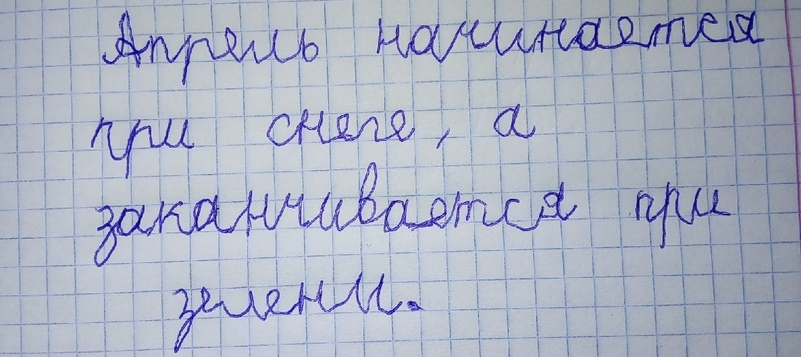 Апрель начинается
при снеге, а
заканчивается при
зелени.